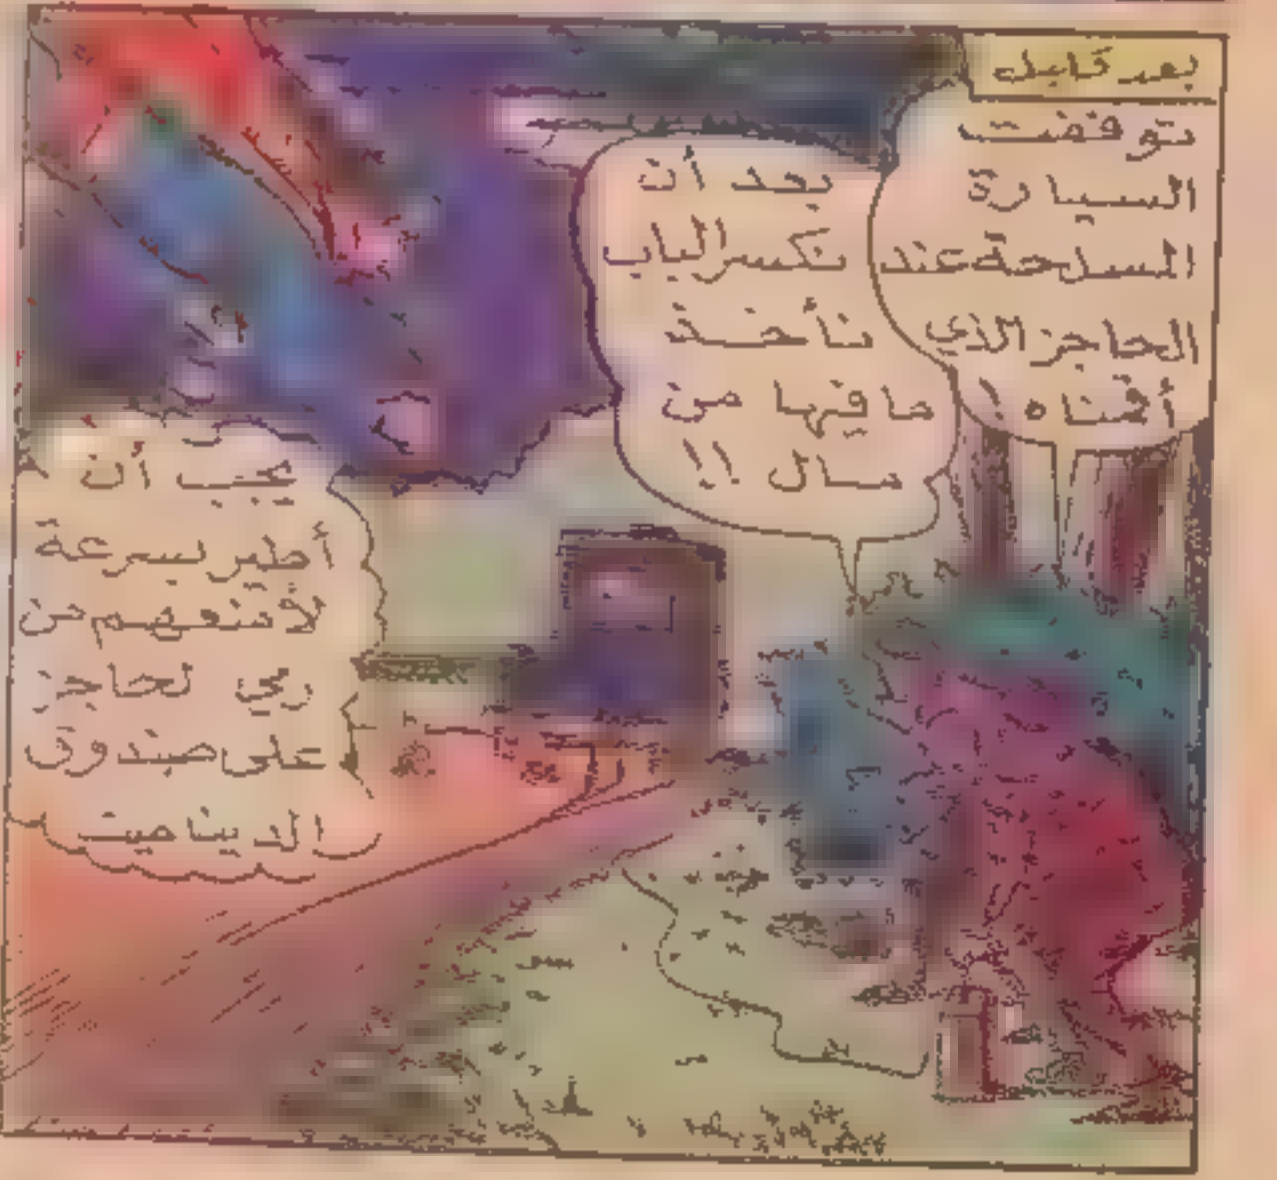 بعد قليل
توقفت
السيارة
المسلحة عند
الحاجز الذي
أقمناه !
بعد أن
نكسر الباب
نأخذ
ما فيها من
مال !!
يجب أن
أطير بسرعة
لأمنعهم من
رمي لحاجز
على صندوق
الديناميت